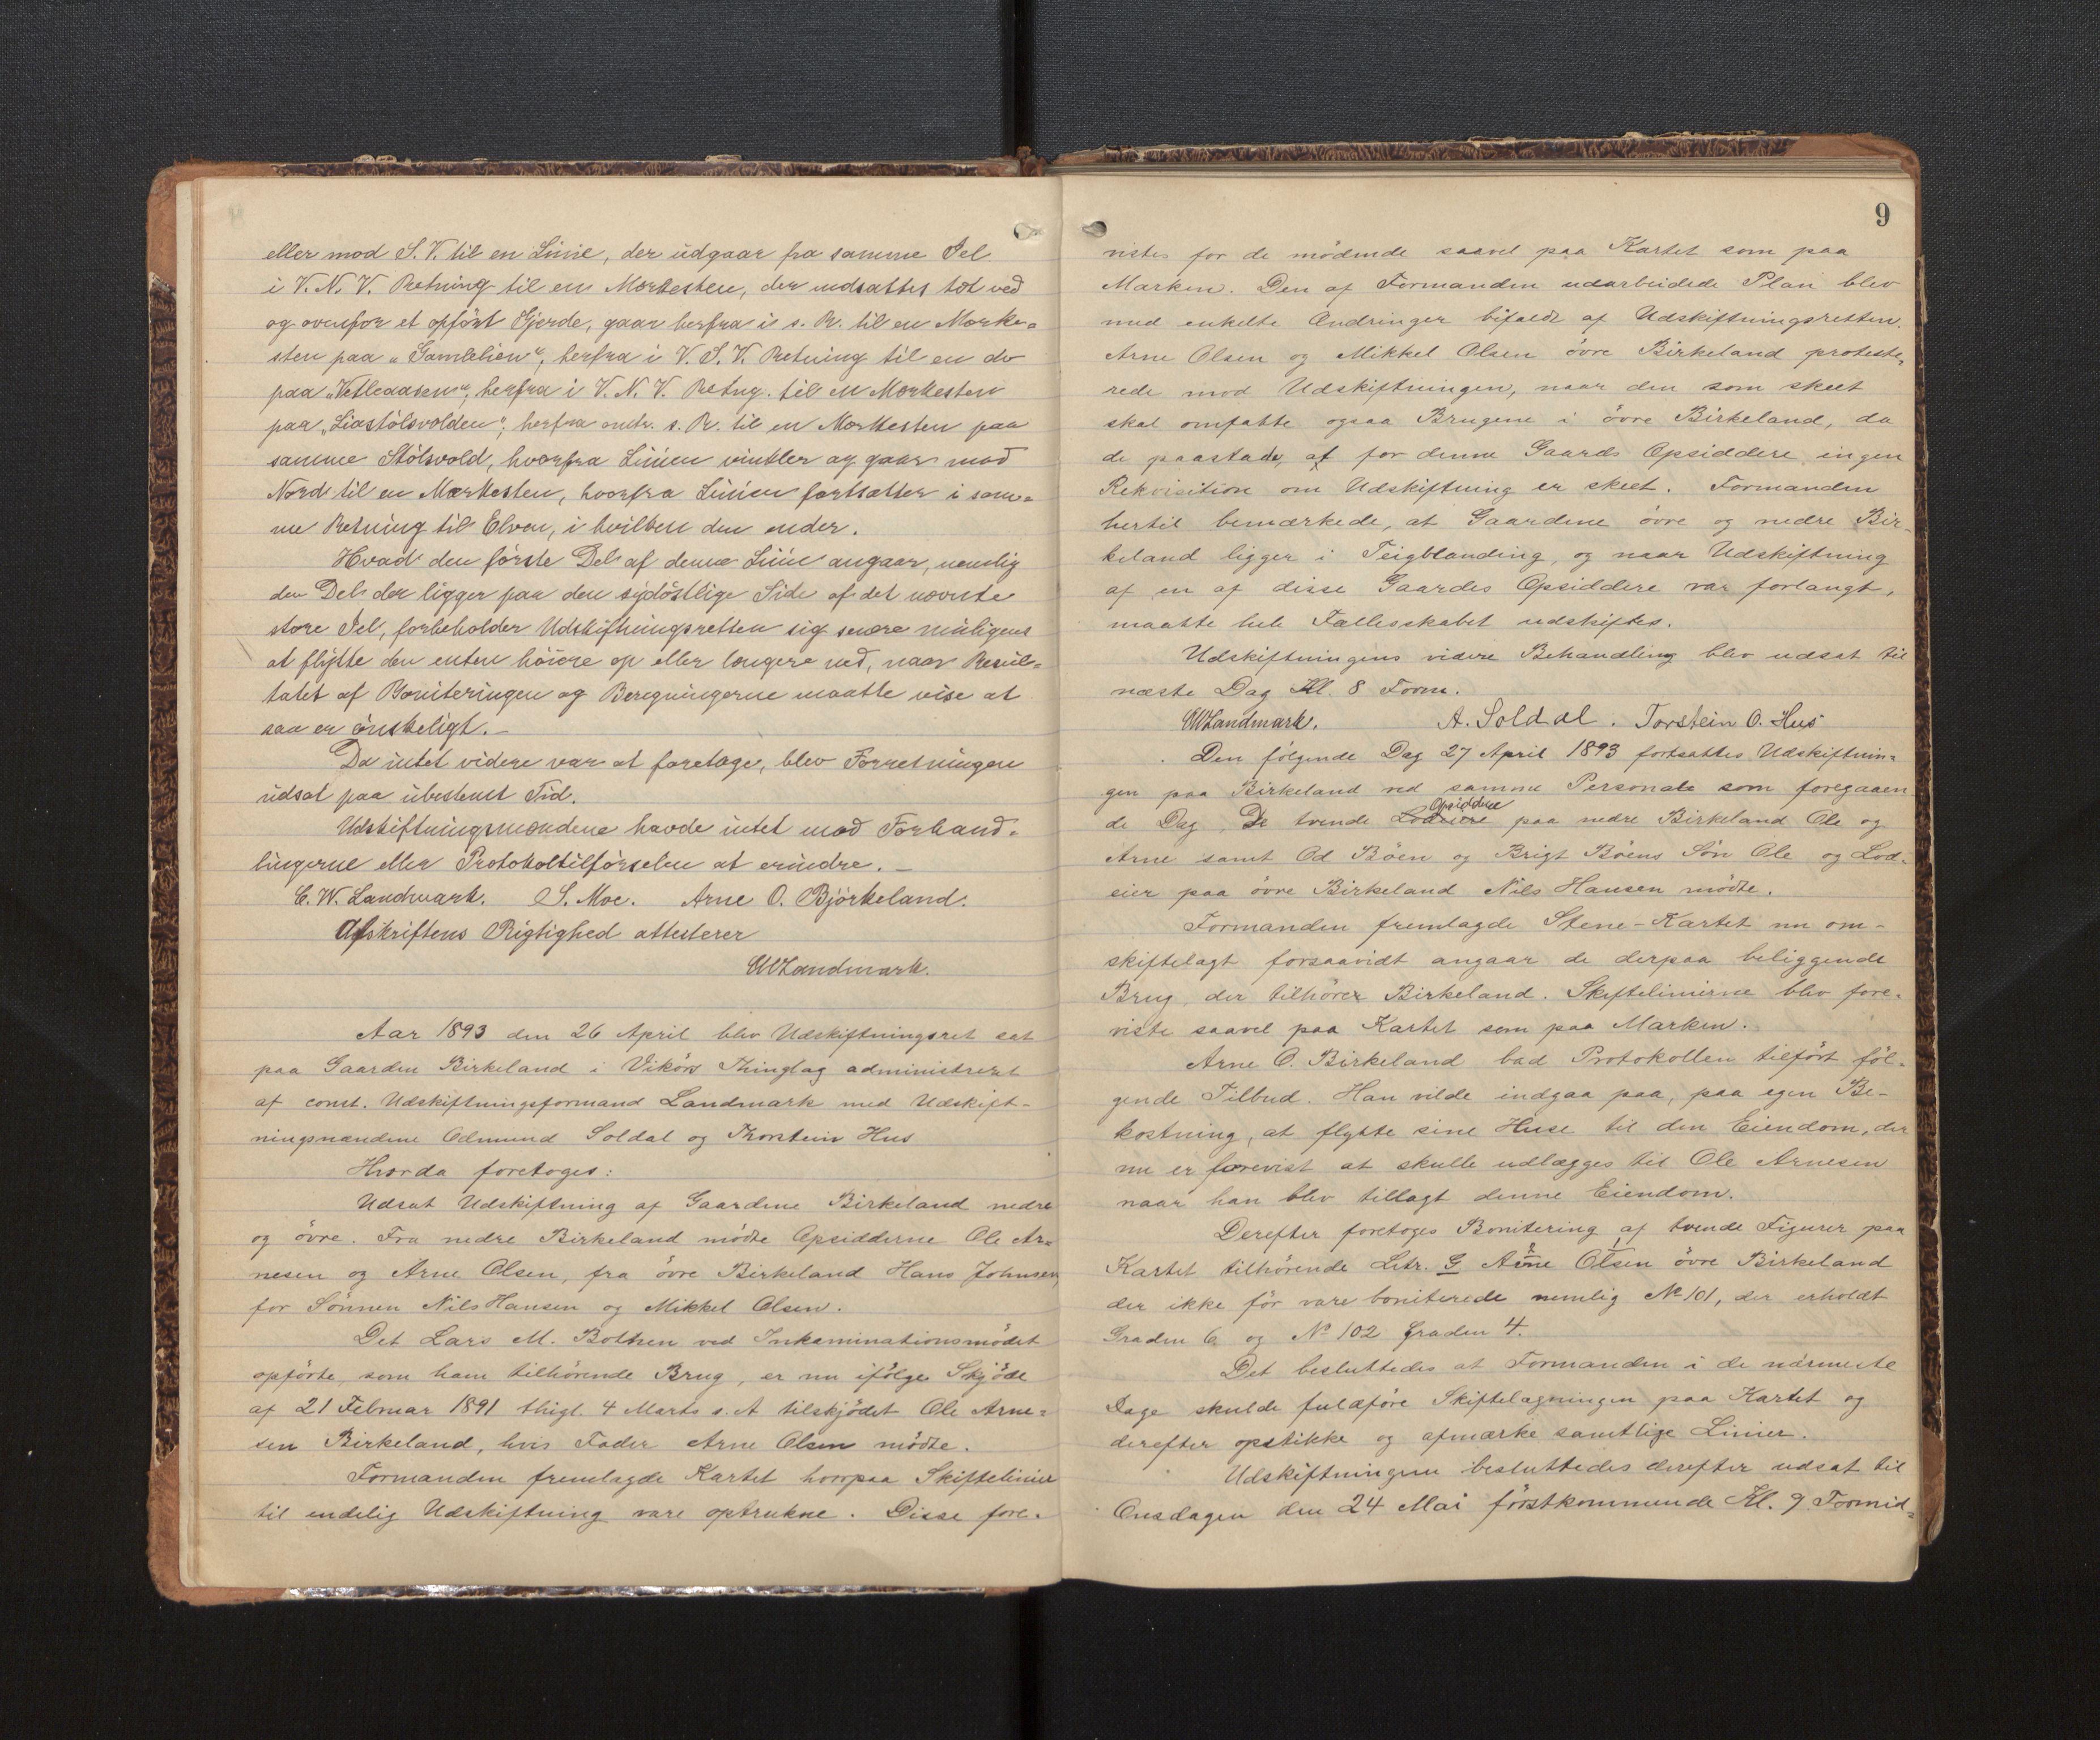 eller mod S. V. til en Linie, der udgaar fra samme Jel
i V. N. V. Retning til en Merkesten, der nedsattes tæt ved
og ovenfor et opført Gjerde, gaar herfra i s. R. til en Merke-
sten paa "Gamlelien", herfra i V. S. V. Retning til en do
paa "Vetleaasen", herfra i V. N. V. Retng. til en Merkesten
paa "Liastölsvolden", herfra omtr. s. R. til en Merkesten paa
samme Stölsvold, hvorfra Linien vinkler og gaar mod
Nord til en Merkesten, hvorfra Linien fortsætter i sam-
me Retning til Elven, i hvilken den ender.
Hvad den første Del af denne Linie angaar, nemlig
den Del der ligger paa den sydöstlige Side af det nævnte
store Jel, forbeholder Udskiftningsretten sig senere muligens
at flytte den enten höiere op eller længere ned, naar Resul-
tatet af Boniteringen og Beregningerne maatte vise at
saa er önskeligt. –
Da intet videre var at foretage, blev Forretningen
udsat paa ubestemt Tid.
Udskiftningsmændene havde intet mod Forhand-
lingerne eller Protokoltilförselen at erindre. –
C. W. Landmark. S. Moe. Arne O. Björkeland.
Afskriftens Rigtighed attesterer
CWLandmark.
Aar 1893 den 26 April blev Udskiftningsret sat
paa Gaarden Birkeland i Vikörs Thinglag administreret
af const. Udskiftningsformand Landmark med Udskift-
ningsmændene Odmund Soldal og Thorstein Hus
Hvorda foretoges:
Udsat Udskiftning af Gaardene Birkeland nedre
og övre. Fra nedre Birkeland mödte Opsidderne Ole Ar-
nesen og Arne Olsen, fra övre Birkeland Hans Johnsen
for Sönnen Nils Hansen og Mikkel Olsen.
Det Lars M. Botnen ved Inkaminationsmödet
opförte, som ham tilhörende Brug, er nu ifölge Skjöde
af 21 Februar 1891 thigl. 4 Marts s. A tilskjödet Ole Arne-
sen Birkeland, hvis Fader Arne Olsen mödte.
Formanden fremlagde Kartet hvorpaa Skiftelinier
til endelig Udskiftning vare optrukne. Disse fore-
9
vistes for de mödende saavel paa Kartet som paa
Marken. Den af Formanden udarbeidede Plan blev
med enkelte Ændringer bifaldt af Udskiftningsretten.
Arne Olsen og Mikkel Olsen övre Birkeland proteste-
rede mod Udskiftningen, naar den som skeet
skal omfatte ogsaa Brugene i övre Birkeland, da
de paastade, at for denne Gaards Opsiddere ingen
Rekvisition om Udskiftning er skeet. Formanden
hertil bemærkede, at Gaardene övre og nedre Bir-
keland ligger i Teigblanding, og naar Udskiftning
af en af disse Gaardes Opsiddere var forlangt,
maatte hele Fællesskabet udskiftes.
Udskiftningens videre Behandling blev udsat til
næste Dag Kl. 8 Form.
CWLandmark. A. Soldal. Torstein O. Hus
Den fölgende Dag 27 April 1893 fortsattes Udskiftnin-
gen paa Birkeland ved samme Personale som foregaaen
Opsiddere
de Dag. De tvende Lodeiere paa nedre Birkeland Ole og
Arne samt Od Böen og Brigt Böens Sön Ole og Lod-
eier paa övre Birkeland Nils Hansen mödte.
Formanden fremlagde Stene-Kartet nu om-
skiftelagt forsaavidt angaar de derpaa beliggende
Brug, der tilhörer Birkeland. Skiftelinierne blev fore-
viste saavel paa Kartet som paa Marken.
Arne O. Birkeland bad Protokollen tilfört föl-
gende Tilbud. Han vilde indgaa paa, paa egen Be-
kostning, at flytte sine Huse til den Eiendom, der
nu er forevist at skulle udlægges til Ole Arnesen
naar han blev tillagt denne Eiendom.
Derefter foretoges Bonitering af tvende Figurer paa
Kartet tilhörende Litr. G Arne Olsen övre Birkeland
der ikke för vare boniterede nemlig No 101, der erholdt
Graden 6 og No 102 Graden 4.
Det besluttedes at Formanden i de nærmeste
Dage skulde fuldföre Skiftelægningen paa Kartet og
derefter opstikke og afmærke samtlige Linier.
Udskiftningen besluttedes derefter udsat til
Onsdagen den 24 Mai förstkommende Kl. 9 Formid-